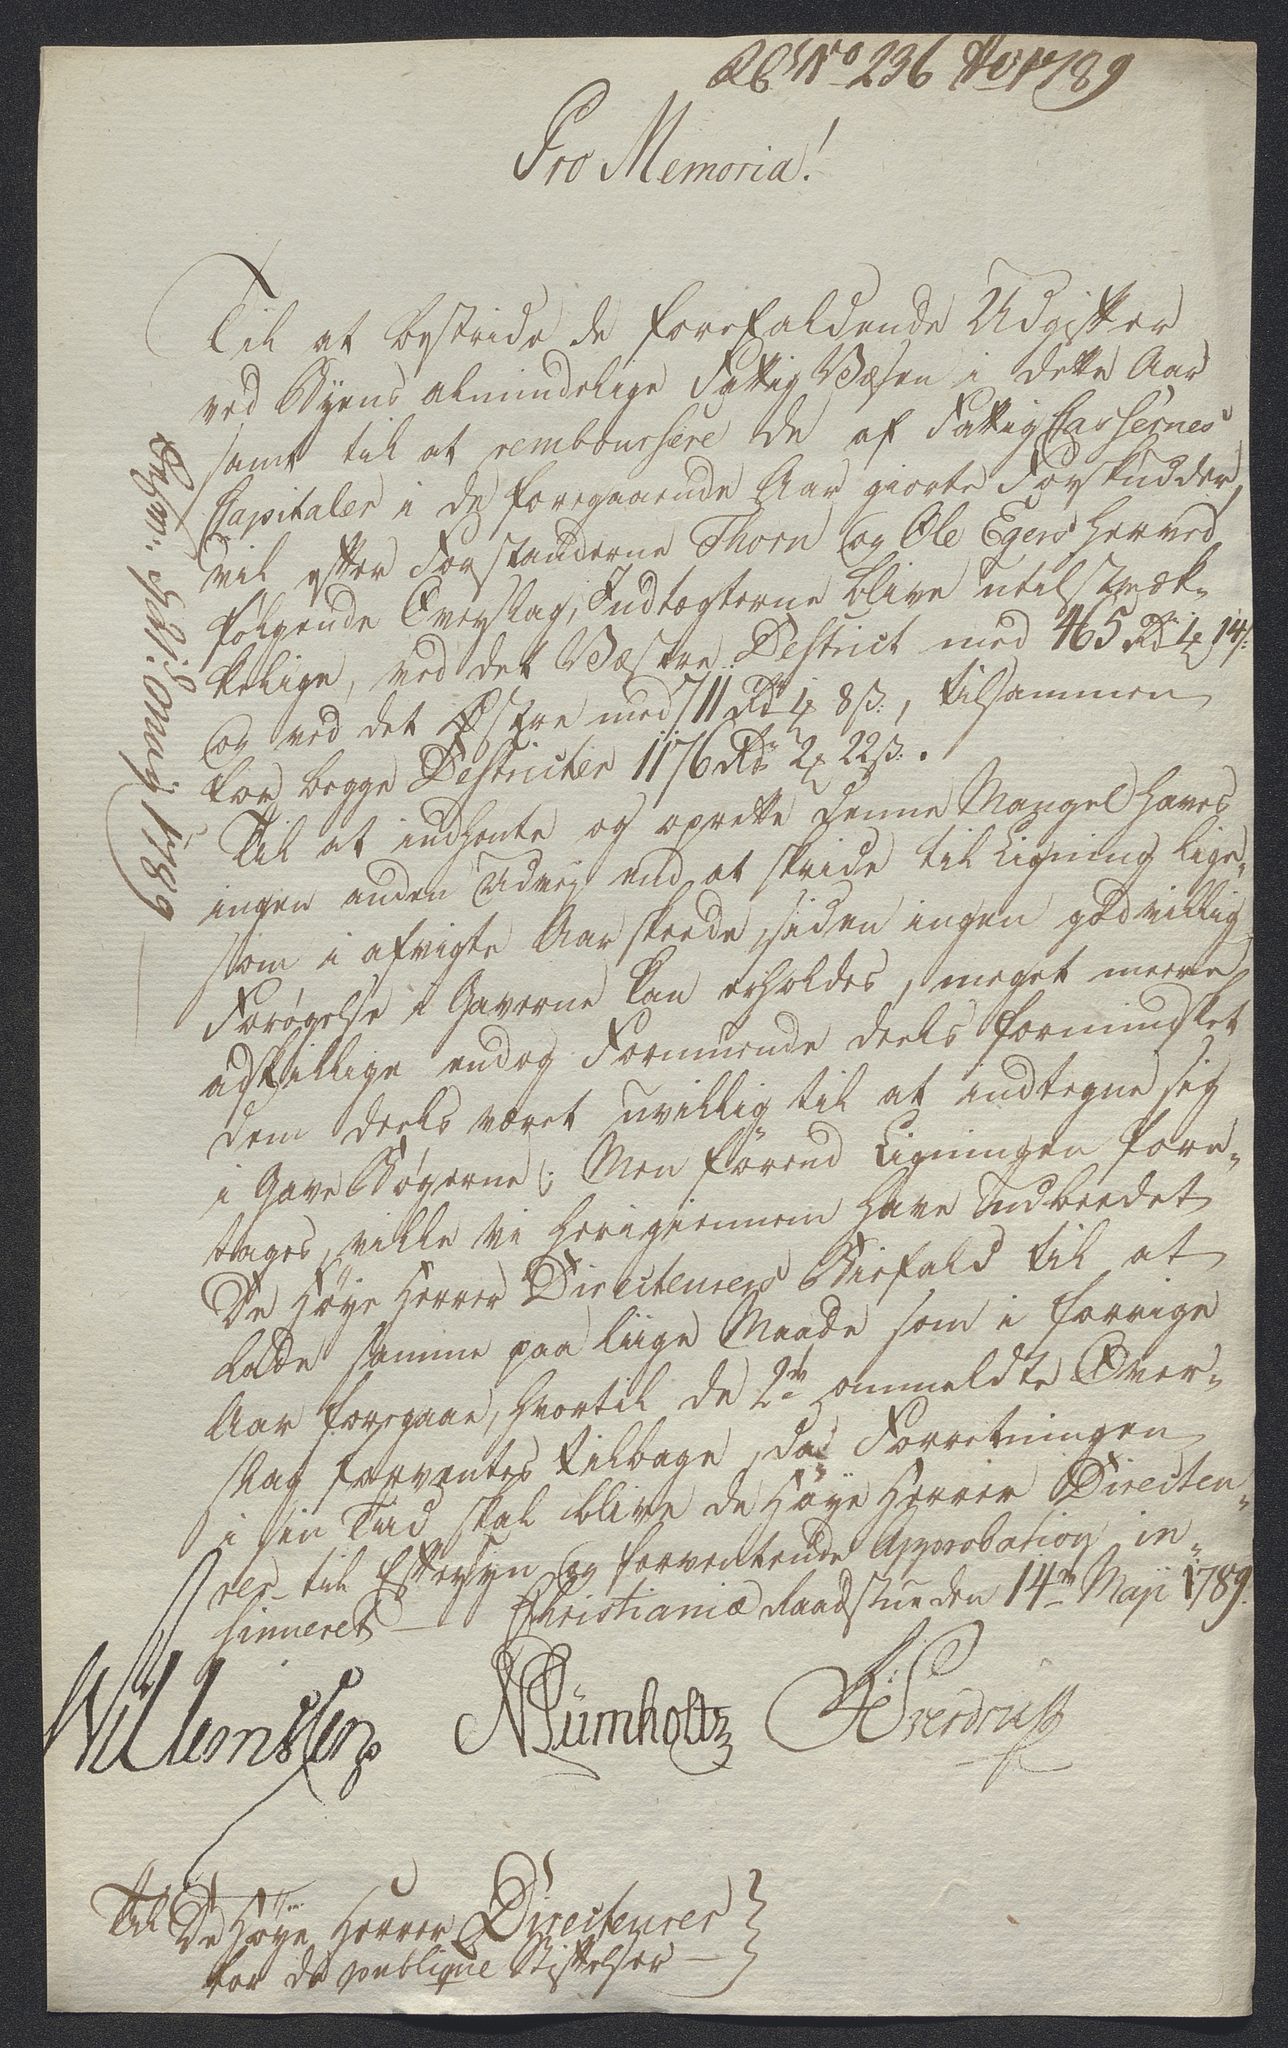 No 236 Ao 1789
Pro Memoria!
Til at bestride de forefaldende Udgifter
ved Byens almindelige Fattig Væsen i dette Aar
samt til at remboursere de af Fattig Cassernes
Capitaler i de foregaaende Aar giorte Forskudder,
vil efter Forstanderne Thorn og Ole Egers herved
følgende Overslag, Indtægterne blive utilstræk-
kelige, ved det Væstre District med 465 Rdr 1 14 s:
og ved det Østre med 711 Rdr 1 8 ß:, tilsammen
for begge Districter 1176 Rdr 2 22 ß:.
Til at indhente og oprette denne Mangel haves
ingen anden Udvej end at skride til Ligning lige-
som i afvigte Aar skeede, siden ingen godvillig
Forøgelse i Gaverne kan erholdes, meget meere
adskillige endog Formuende deels formindsket
dem deels været uvillig til at indtegne sig
i Gave Bøgerne; Men førend Ligningen fore-
tages, ville vi herigiennem have Indbeedet
De Høye Herrer Directeurers Biefald til at
lade samme paa liige Maade som i forrige
Aar foregaae, hvortil de 2de ommeldte Over-
slag forventes tilbage, da Forretningen
i sin Tiid skal blive de Høye Herrer Directeu-
rer til Eftersyn og forventende Approbation in-
sinueret — Christianiæ Raadstue den 14de Maji 1789.
Willemssen NRümholtz Sverdrup
Til De Høye Herrer Directeurer
for de publique Stiftelser —
Maij 1789